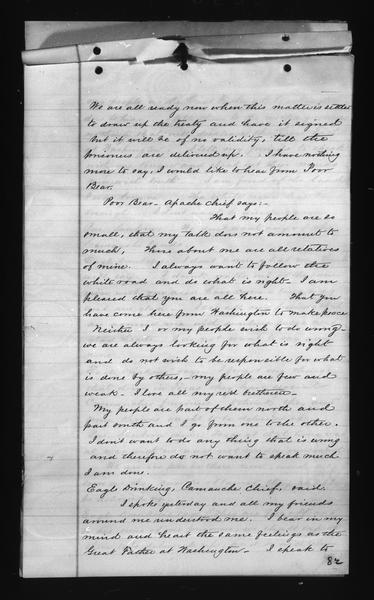 We are all ready now when this matter is settled
to draw up the treaty and have it signed
but it will be of no validity, till the
prisoners are delivered up. I have nothing
more to say. I would like to hear from Poor
Bear.
Poor Bear - Apache Chief says:-
That my people are so
small, that my talk does not amount to
much, those about me are all relatives
of mine. I always want to follow the
white road and do what is right - I am
pleased that you are all here. That you
have come here from Washington to make peace
Neither I or my people wish to do wrong -
we are always looking for what is right
and do not wish to be responsible for what
is done by others, - my people are few and
weak - I love all my red brethren -
My people are part of them north and
part south and I go from one to the other.
I don't want to do any thing that is wrong
and therefore do not want to speak much
I am done.
Eagle Drinking, Camanche Chief, said.
I spoke yesterday and all my friends
around me understood me. I bear in my
mind and heart the same feelings as the
Great Father at Washington - I speak to
82